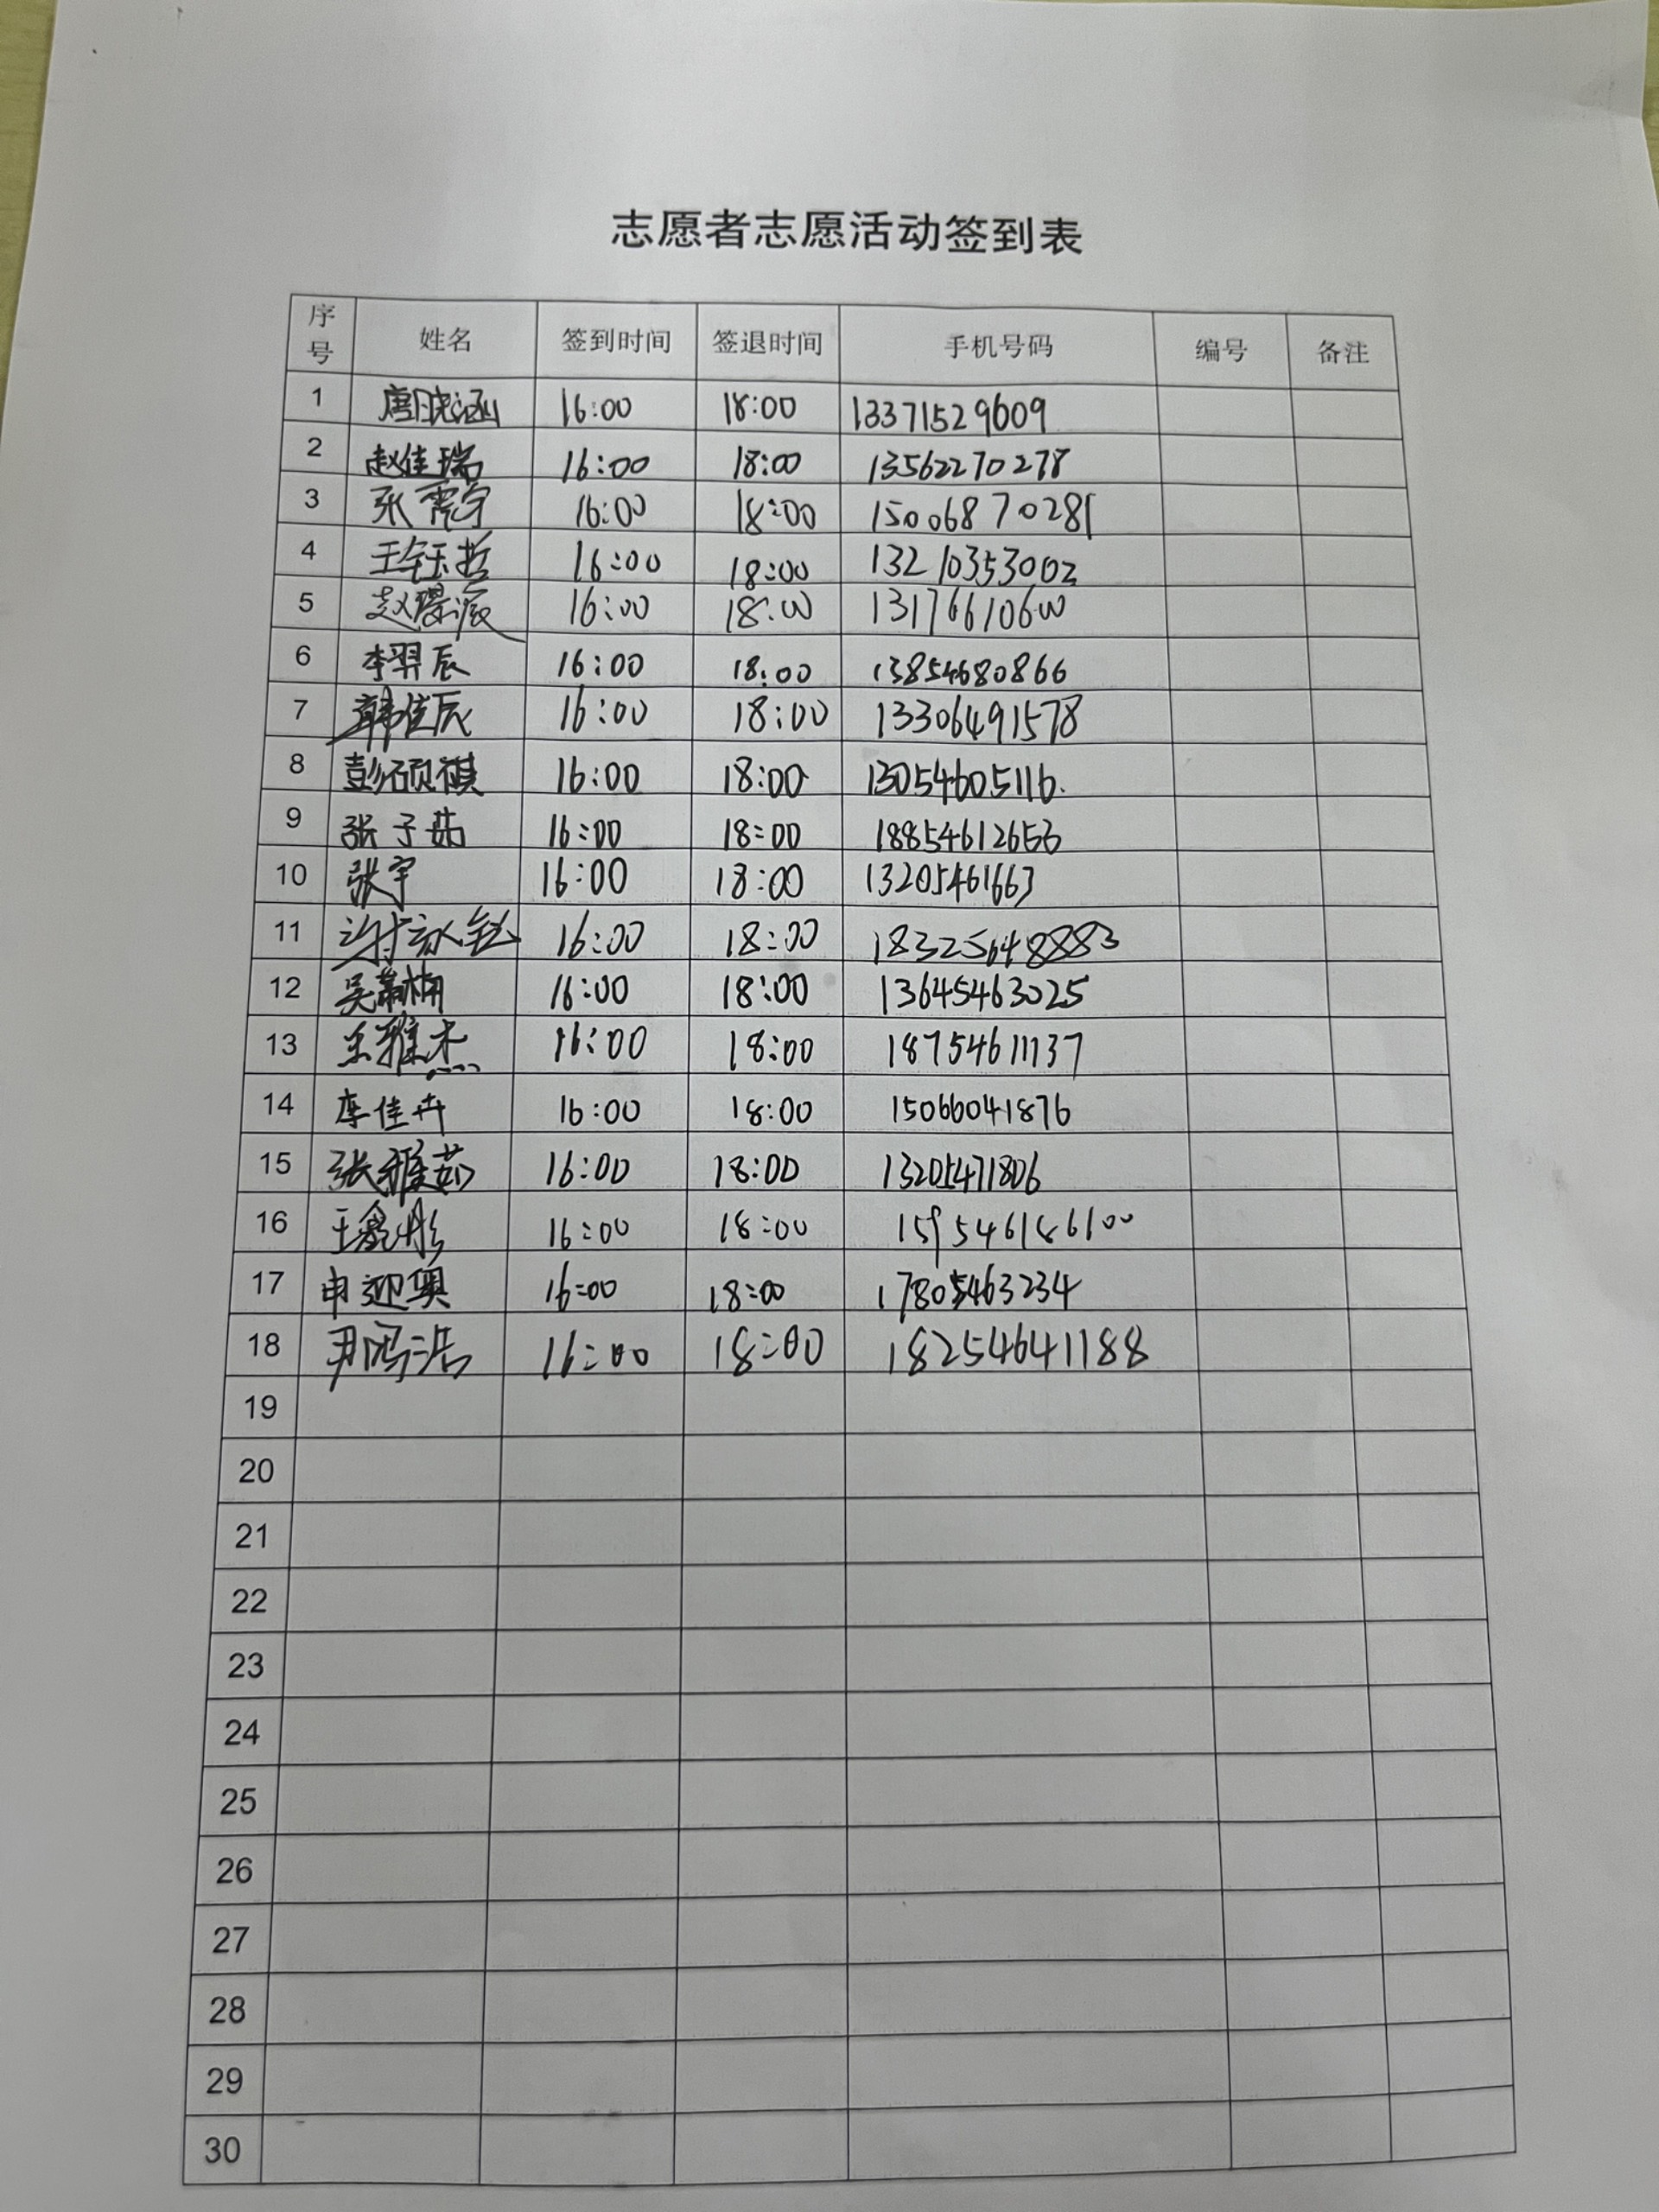 志愿者志愿活动签到表
序号 姓名 签到时间 签退时间 手机号码 编号 备注
1 唐晓涵 16:00 18:00 13371529609
2 赵佳瑞 16:00 18:00 13562270278
3 张霈宇 16:00 18:00 15006870281
4 王钰哲 16:00 18:00 13210353002
5 赵璟滨 16:00 18:00 13176610600
6 李羿辰 16:00 18:00 13854680866
7 韩佳辰 16:00 18:00 13306491578
8 彭硕祺 16:00 18:00 13054605116.
9 张子茹 16:00 18:00 18854612653
10 张宇 16:00 18:00 13205461663
11 16:00 18:00 18325648883
12 吴萧楠 16:00 18:00 13645463025
13 王雅杰 16:00 18:00 18754611137
14 李佳卉 16:00 18:00 15066041876
15 张雅茹 16:00 18:00 13205471806
16 16:00 18:00
17 申迎奥 16:00 18:00 17805463234
18 尹鸿浩 16:00 18:00 18254641188
19
20
21
22
23
24
25
26
27
28
29
30